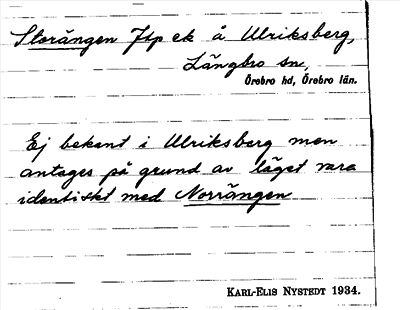 Storängen Jtp ek å Ulriksberg,
Längbro sn,
Örebro hd, Örebro län.
Ej bekant i Ulriksberg men
antages på grund av läget vara
identiskt med Norrängen
KARL-ELIS NYSTEDT 1934.